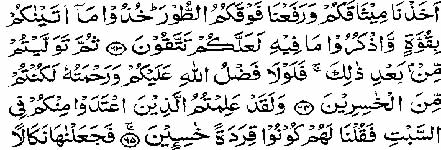 اَخَذْنَا مِيْثَاقَكُمْ وَرَفَعْنَا فَوْقَكُمُ الطُّوْرَ ؕ خُذُوْا مَاۤ اٰتَيْنٰكُمْ
بِقُوَّةٍ وَّاذْكُرُوْا مَا فِيْهِ لَعَلَّكُمْ تَتَّقُوْنَ ﴿۶۳﴾ ثُمَّ تَوَلَّيْتُمْ
مِّنْۢ بَعْدِ ذٰلِكَ ۚ فَلَوْلَا فَضْلُ اللّٰهِ عَلَيْكُمْ وَرَحْمَتُهٗ لَكُنْتُمْ
مِّنَ الْخٰسِرِيْنَ ﴿۶۴﴾ وَلَقَدْ عَلِمْتُمُ الَّذِيْنَ اعْتَدَوْا مِنْكُمْ فِي
السَّبْتِ فَقُلْنَا لَهُمْ كُوْنُوْا قِرَدَةً خٰسِـِٕيْنَ ﴿۶۵﴾ فَجَعَلْنٰهَا نَكَالًا